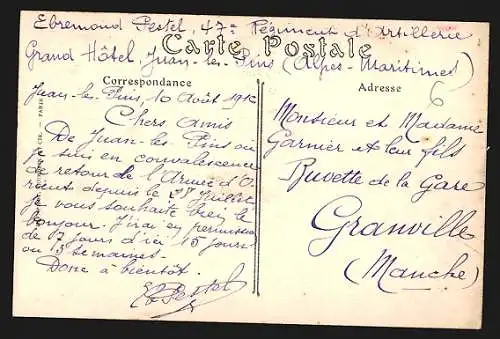 Ebremond Pestel, 47e Régiment d'Artillerie
Carte Postale
Grand Hôtel, Juan-les-Pins (Alpes-Maritimes)
Correspondance
Juan-les-Pins, 10 Août 191
Chers amis
De Juan-les-Pins où
je suis en convalescence
de retour de l'Armée d'O-
rient depuis le Juillet
je vous souhaite bien le
bonjour. J'irai en permission
de 17 jours d'ici 15 jours
ou 3 semaines.
Donc à bientôt.
E Pestel
Adresse
6
Monsieur et Madame
Garnier et leur fils
Buvette de la Gare
Granville
(Manche)
PARIS